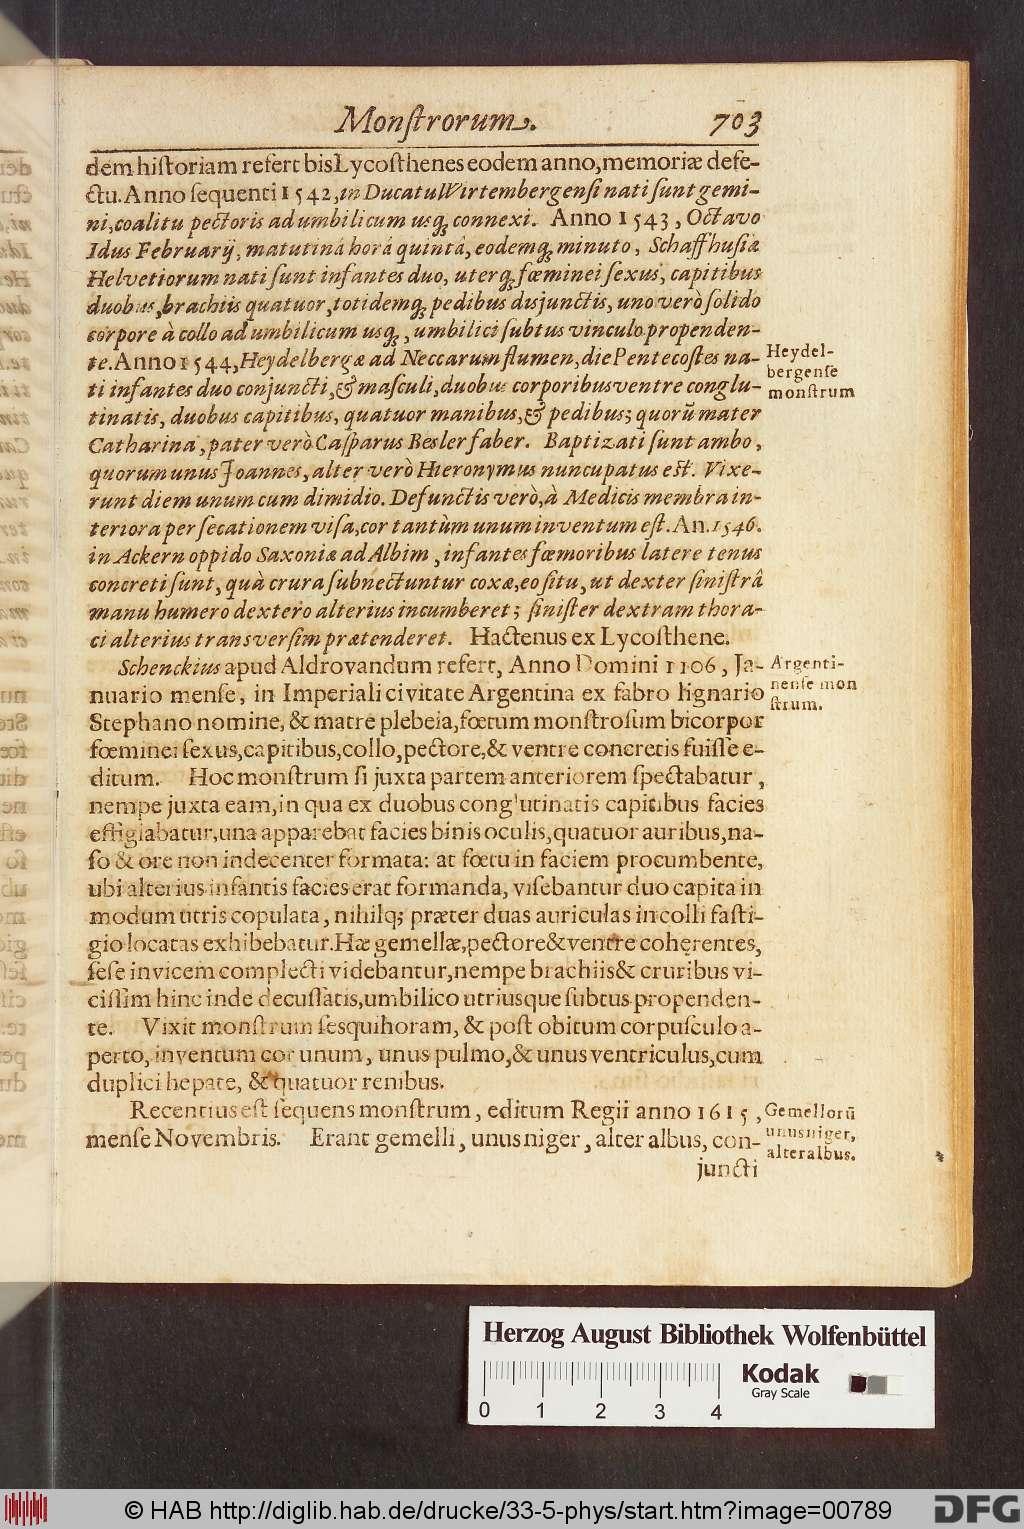 Monſtrorum.
703
dem hiſtoriam refert bis Lycoſthenes eodem anno, memoriæ defe-
ctu. Anno ſequenti 1542, in Ducatu Wirtembergenſi nati ſunt gemi-
ni, coalitu pectoris ad umbilicum usq; connexi. Anno 1543, Octavo
Idus Februarij, matutinâ horâ quintâ, eodemq; minuto, Schaffhuſiæ
Helvetiorum nati ſunt infantes duo, uterq; fœminei ſexus, capitibus
duobus, brachiis quatuor, totidemq; pedibus disjunctis, uno verò ſolido
corpore à collo ad umbilicum usq;, umbilici ſubtus vinculo propenden-
te. Anno 1544, Heydelbergæ ad Neccarum flumen, die Pentecoſtes na-
ti infantes duo conjuncti, & maſculi, duobus corporibus ventre conglu-
tinatis, duobus capitibus, quatuor manibus, & pedibus; quorũ mater
Catharina, pater verò Caſparus Besler faber. Baptizati ſunt ambo,
quorum unus Joannes, alter verò Hieronymus nuncupatus eſt. Vixe-
runt diem unum cum dimidio. Defunctis verò, à Medicis membra in-
teriora per ſecationem viſa, cor tantùm unum inventum eſt. An. 1546.
in Ackern oppido Saxoniæ ad Albim, infantes fœmoribus latere tenus
concreti ſunt, quà crura ſubnectuntur coxæ, eo ſitu, ut dexter ſiniſtrâ
manu humero dextero alterius incumberet; ſiniſter dextram thora-
ci alterius transverſim prætenderet. Hactenus ex Lycoſthene.
Schenckius apud Aldrovandum refert, Anno Domini 1106, Ja-
nuario menſe, in Imperiali civitate Argentina ex fabro lignario
Stephano nomine, & matre plebeia, fœtum monſtroſum bicorpor
fœminei ſexus, capitibus, collo, pectore, & ventre concretis fuiſſe e-
ditum. Hoc monſtrum ſi juxta partem anteriorem ſpectabatur,
nempe juxta eam, in qua ex duobus conglutinatis capitibus facies
effigiabatur, una apparebat facies binis oculis, quatuor auribus, na-
ſo & ore non indecenter formata: at fœtu in faciem procumbente,
ubi alterius infantis facies erat formanda, viſebantur duo capita in
modum utris copulata, nihilq; præter duas auriculas in colli faſti-
gio locatas exhibebatur. Hæ gemellæ, pectore & ventre cohęrentes,
ſeſe invicem complecti videbantur, nempe brachiis & cruribus vi-
ciſſim hinc inde decuſſatis, umbilico utriusque ſubtus propenden-
te. Vixit monſtrum ſesquihoram, & poſt obitum corpuſculo a-
perto, inventum cor unum, unus pulmo, & unus ventriculus, cum
duplici hepate, & quatuor renibus.
Recentius eſt ſequens monſtrum, editum Regii anno 1615,
menſe Novembris. Erant gemelli, unus niger, alter albus, con-
juncti
Heydel-
bergenſe
monſtrum
Argenti-
nenſe mon
ſtrum.
Gemellorũ
unus niger,
alter albus.
Herzog August Bibliothek Wolfenbüttel
Kodak
Gray Scale
0 1 2 3 4
© HAB http://diglib.hab.de/drucke/33-5-phys/start.htm?image=00789
DFG